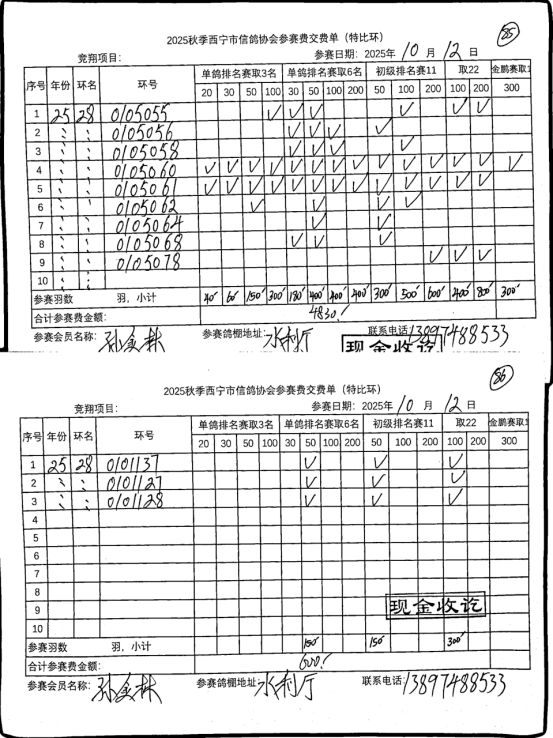 85
2025秋季西宁市信鸽协会参赛费交费单（特比环）
竞翔项目： 参赛日期：2025年10月12日
序号 年份 环名 环号 单鸽排名赛取3名 单鸽排名赛取6名 初级排名赛11 取22 金鹏赛取1
20 30 50 100 30 50 100 200 50 100 200 100 200 300
1 25 28 0105055 ✓ ✓ ✓ ✓ ✓ ✓
2 〃 〃 0105056 ✓ ✓ ✓ ✓
3 〃 〃 0105058 ✓ ✓ ✓ ✓
4 〃 〃 0105060 ✓ ✓ ✓ ✓ ✓ ✓ ✓ ✓ ✓ ✓ ✓ ✓ ✓ ✓
5 〃 〃 0105061 ✓ ✓ ✓ ✓ ✓ ✓ ✓ ✓ ✓ ✓ ✓ ✓ ✓
6 〃 〃 0105062 ✓ ✓ ✓ ✓
7 〃 〃 0105064 ✓ ✓
8 〃 〃 0105068 ✓ ✓ ✓
9 〃 〃 0105078 ✓ ✓ ✓
10
参赛羽数 羽，小计 40 60 150 300 180 400 400 400 300 500 600 400 800 300
合计参赛费金额： 4830
参赛会员名称： 孙美林 参赛鸽棚地址： 水利厅 联系电话 13897488533
现金收讫
86
2025秋季西宁市信鸽协会参赛费交费单（特比环）
竞翔项目： 参赛日期：2025年10月12日
序号 年份 环名 环号 单鸽排名赛取3名 单鸽排名赛取6名 初级排名赛11 取22 金鹏赛取1
20 30 50 100 30 50 100 200 50 100 200 100 200 300
1 25 28 0101137 ✓ ✓ ✓
2 〃 〃 0101127 ✓ ✓ ✓
3 〃 〃 0101128 ✓ ✓ ✓
4
5
6
7
8
9
现金收讫
10
参赛羽数 羽，小计 150 150 300
合计参赛费金额： 600
参赛会员名称： 孙美林 参赛鸽棚地址： 水利厅 联系电话： 13897488533